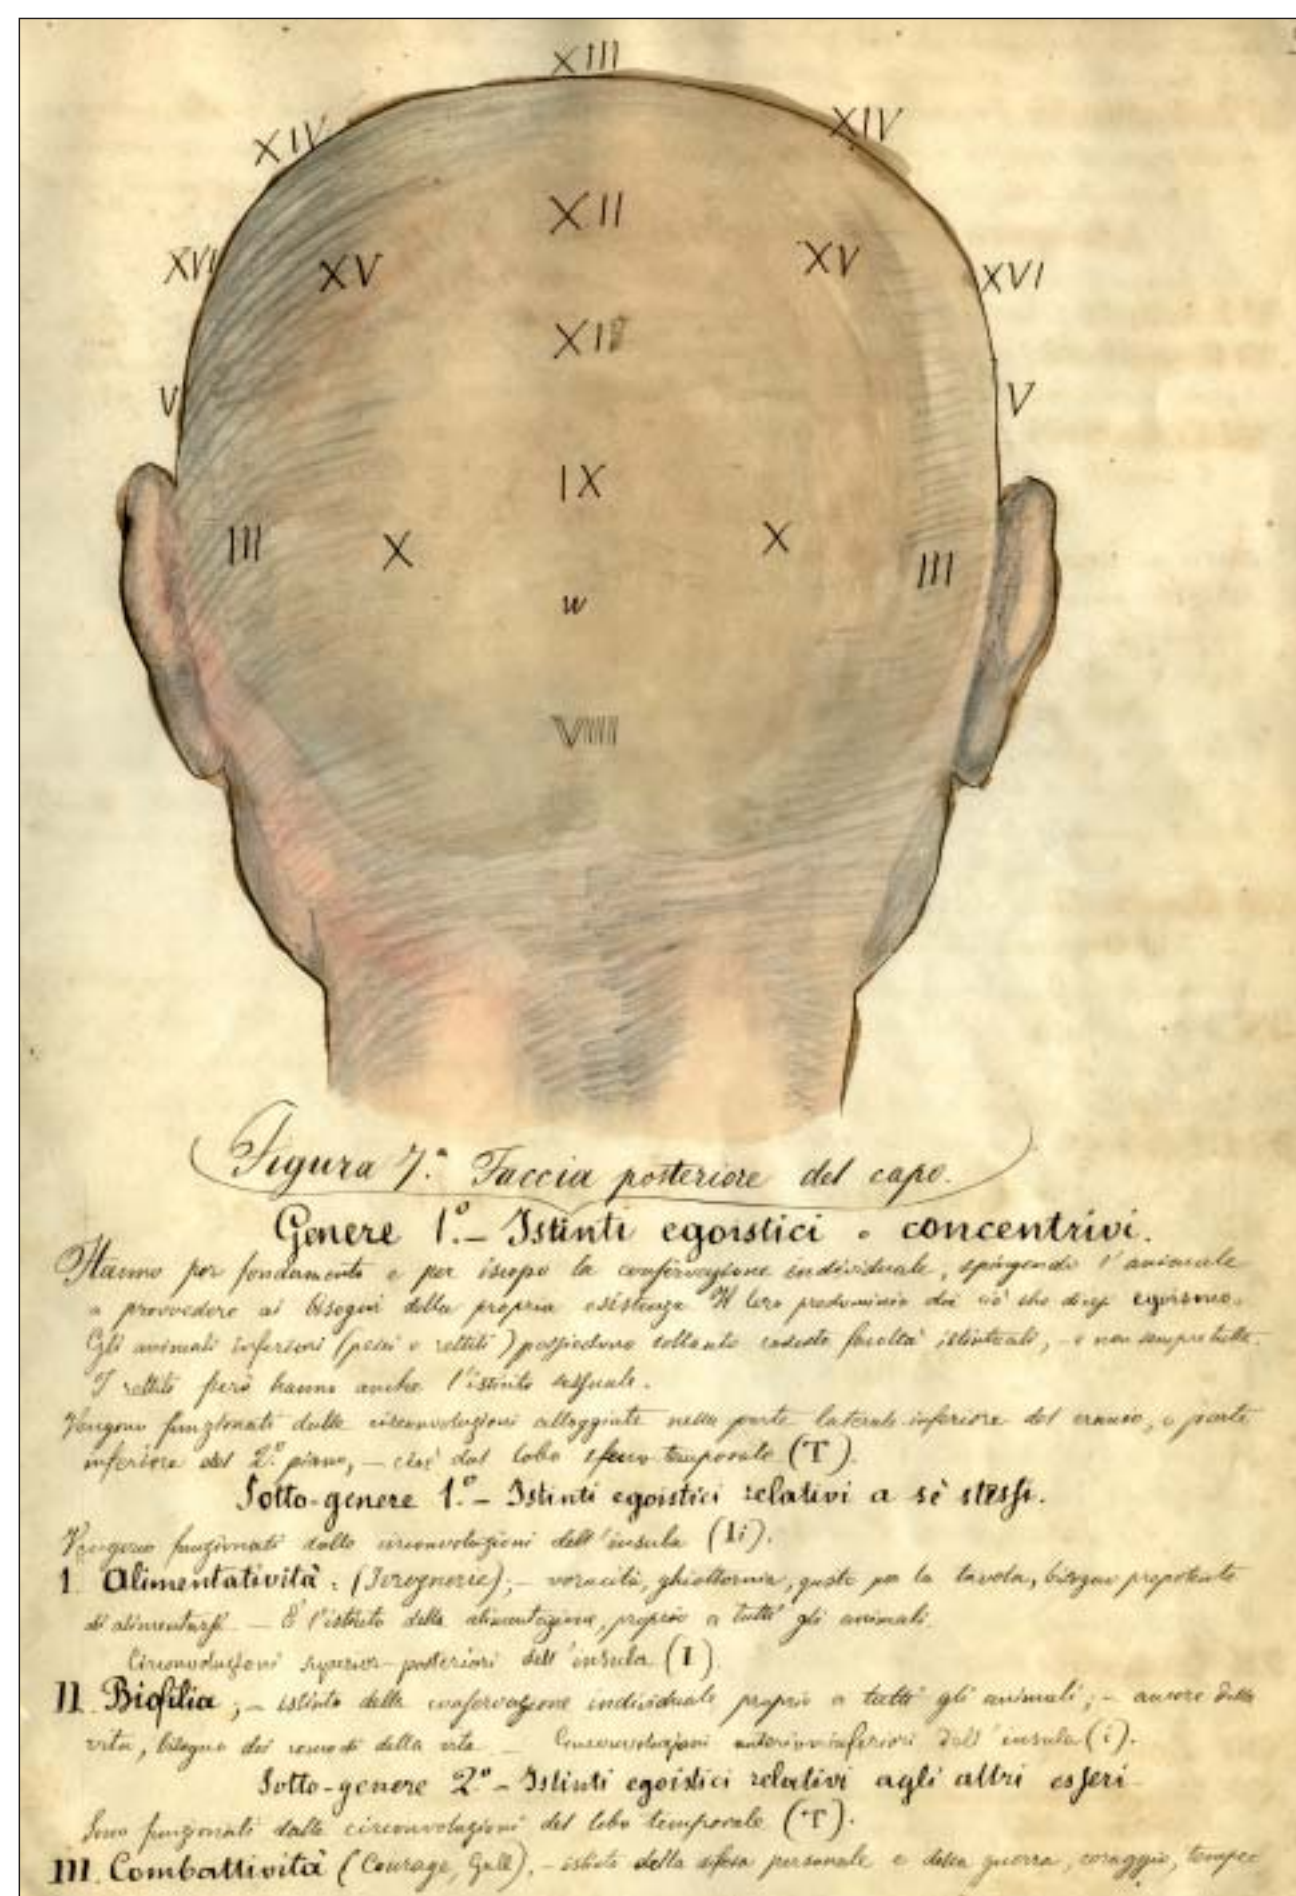 XIII
XIV XIV
XII
XVI XV XV XVI
XI
V V
IX
III X X III
w
VIII
Figura 7.ª Faccia posteriore del capo.
Genere 1.º - Istinti egoistici o concentrivi.
Hanno per fondamento e per iscopo la conservazione individuale, spingendo l'animale
a provvedere ai bisogni della propria esistenza Il loro predominio dà ciò che dicesi egoismo.
Gli animali inferiori (pesci e rettili) possiedono soltanto codeste facoltà istintuali, - e non sempre tutte.
I rettili però hanno anche l'istinto sessuale.
Vengono funzionati dalle circonvoluzioni alloggiate nella parte laterale inferiore del cranio, o parte
inferiore del 2.º piano, - cioè dal lobo sfeno-temporale (T).
Sotto-genere 1.º - Istinti egoistici relativi a sè stessi.
Vengono funzionati dalle circonvoluzioni dell'insula (Ii).
I Alimentatività: - voracità, ghiottornia, gusto per la tavola, bisogno prepotente
di alimentarsi. - È l'istinto della alimentazione, proprio a tutti gli animali.
Circonvoluzioni superior-posteriori dell'insula (I)
II. Biofilia; - istinto della conservazione individuale proprio a tutti gli animali; - amore della
vita, bisogno dei comodi della vita - Circonvoluzioni anteriori-inferiori dell'insula (i).
Sotto-genere 2.º - Istinti egoistici relativi agli altri esseri
Sono funzionati dalle circonvoluzioni del lobo temporale (T).
III. Combattività (Courage, Gall), - istinto della difesa personale e della guerra, coraggio,